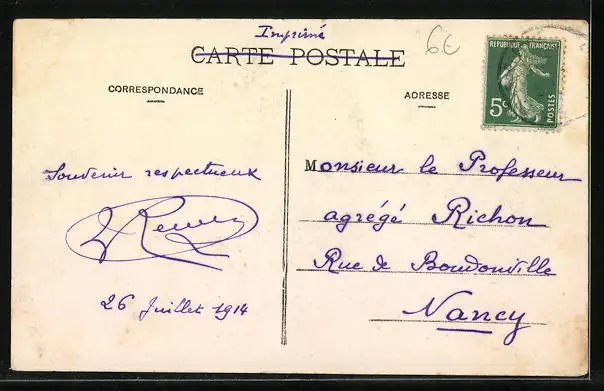 Imprimé
CARTE POSTALE
6€
CORRESPONDANCE
ADRESSE
REPUBLIQUE FRANÇAISE
5c
POSTES
Souvenir respectueux
26 Juillet 1914
Monsieur le Professeur
agrégé Richon
Rue de Boudonville
Nancy